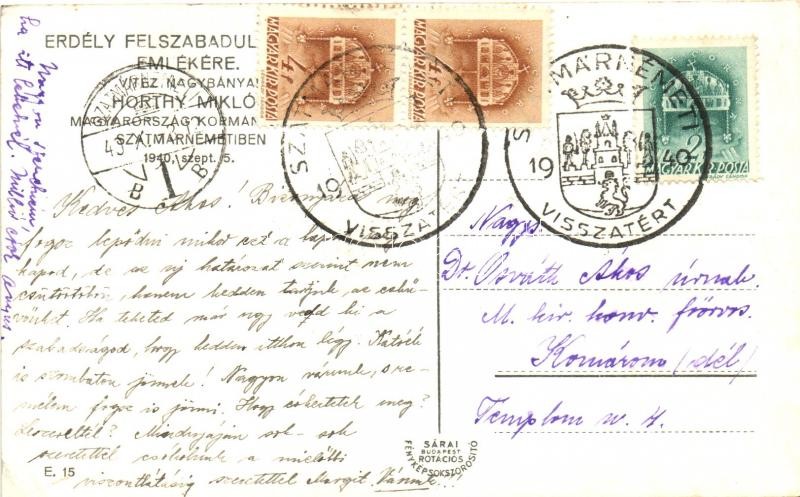 ERDÉLY FELSZABADUL
EMLÉKÉRE.
VITÉZ NAGYBÁNYA
HORTHY MIKLÓ
MAGYARORSZÁG KORMAN
SZATMÁRNÉMETIBEN
1940. szept. 5.
MAGYAR KIR. POSTA
MAGYAR KIR. POSTA
2
MAGYAR KIR. POSTA
1940
VISSZATÉRT
SZATMÁRNÉMETI
1940
VISSZATÉRT
B 1 B
Kedves Ákos! meg
fogsz lepődni mikor ezt a lapot
kapod, de az új határozat szerint nem
csütörtökön, hanem kedden tartjuk az eskü-
vőnket. Ha teheted már úgy vedd ki a
szabadságod, hogy kedden itthon légy. Katóék
is szombaton jönnek! Nagyon várunk, s re-
mélem fogsz is jönni. Hogy érkeztetek meg?
Mindnyájan sok-sok
szeretettel csókolunk a mielőbbi
viszontlátásig szeretettel Margit
Nagyon
ha itt lehetnél. Millió csók Anyus.
Nagys.
Dr. Osváth Ákos úrnak
M. kir. honv. főorvos.
Komárom (dél)
Templom u. 4.
E. 15
SÁRAI
BUDAPEST
ROTÁCIÓS
FÉNYKÉPSOKSZOROSÍTÓ